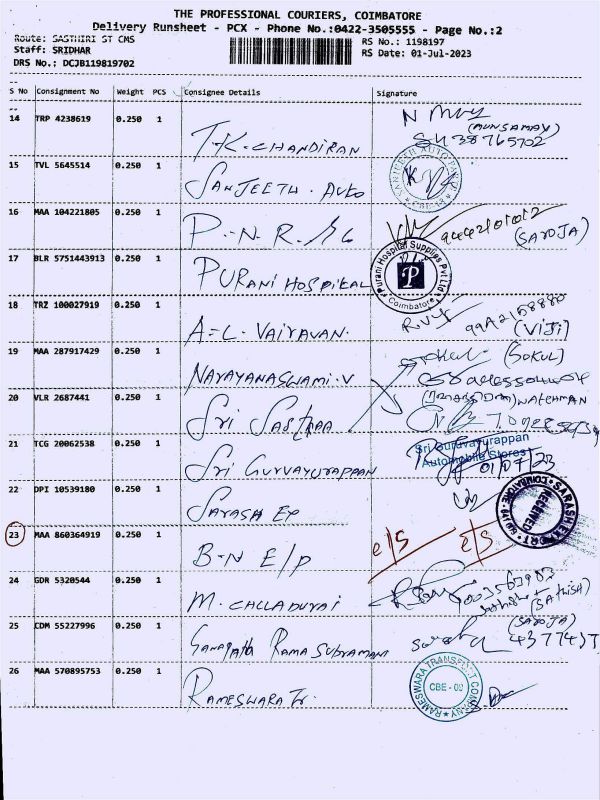 THE PROFESSIONAL COURIERS, COIMBATORE
Delivery Runsheet - PCX - Phone No.:0422-3505555 - Page No.:2
Route: SASTHIRI ST CMS
RS No.: 1198197
Staff: SRIDHAR
RS Date: 01-Jul-2023
DRS No.: DCJB119819702
S No Consignment No Weight PCS Consignee Details Signature
14 TRP 4238619 0.250 1 T.K.CHANDIRAN
(MUNSAMAY)
15 TVL 5645514 0.250 1 SANJEETH. AUTO
SANJEETH AUTO
16 MAA 104221805 0.250 1 P.N.R.
(SAROJA)
17 BLR 5751443913 0.250 1 PURANI HOSPIKAL
Purani Hospital Supplies Pvt Ltd
P
Coimbatore
18 TRZ 100027919 0.250 1 A-L. VAIRAVAN.
(VIJI)
19 MAA 287917429 0.250 1 NARAYANASWAMI.V
(GOKUL)
20 VLR 2687441 0.250 1 SRI SASTHAA
WATCHMAN
21 TCG 20062538 1 SRI GURVAYURAPPAN
0.250
Sri Guruvayurappan
Automobile Stores
01/07/23
22 DPI 10539180 0.250 1 SARASH EX
SARASH EXPORT
COIMBATORE
RECEIVED
23 MAA 860364919 0.250 1 B-N E/P
e/s e/s
24 GDR 5320544 0.250 1 M. CHLLADURAI
(SATHISH)
25 CDM 55227996 0.250 1 GANAPATH RAMA SUBRAMANI
(SAROJA)
4377457
26 MAA 570895753 0.250 1 RAMESWARA Tr.
RAMESWARA TRANSPORT COMPANY
CBE - 09